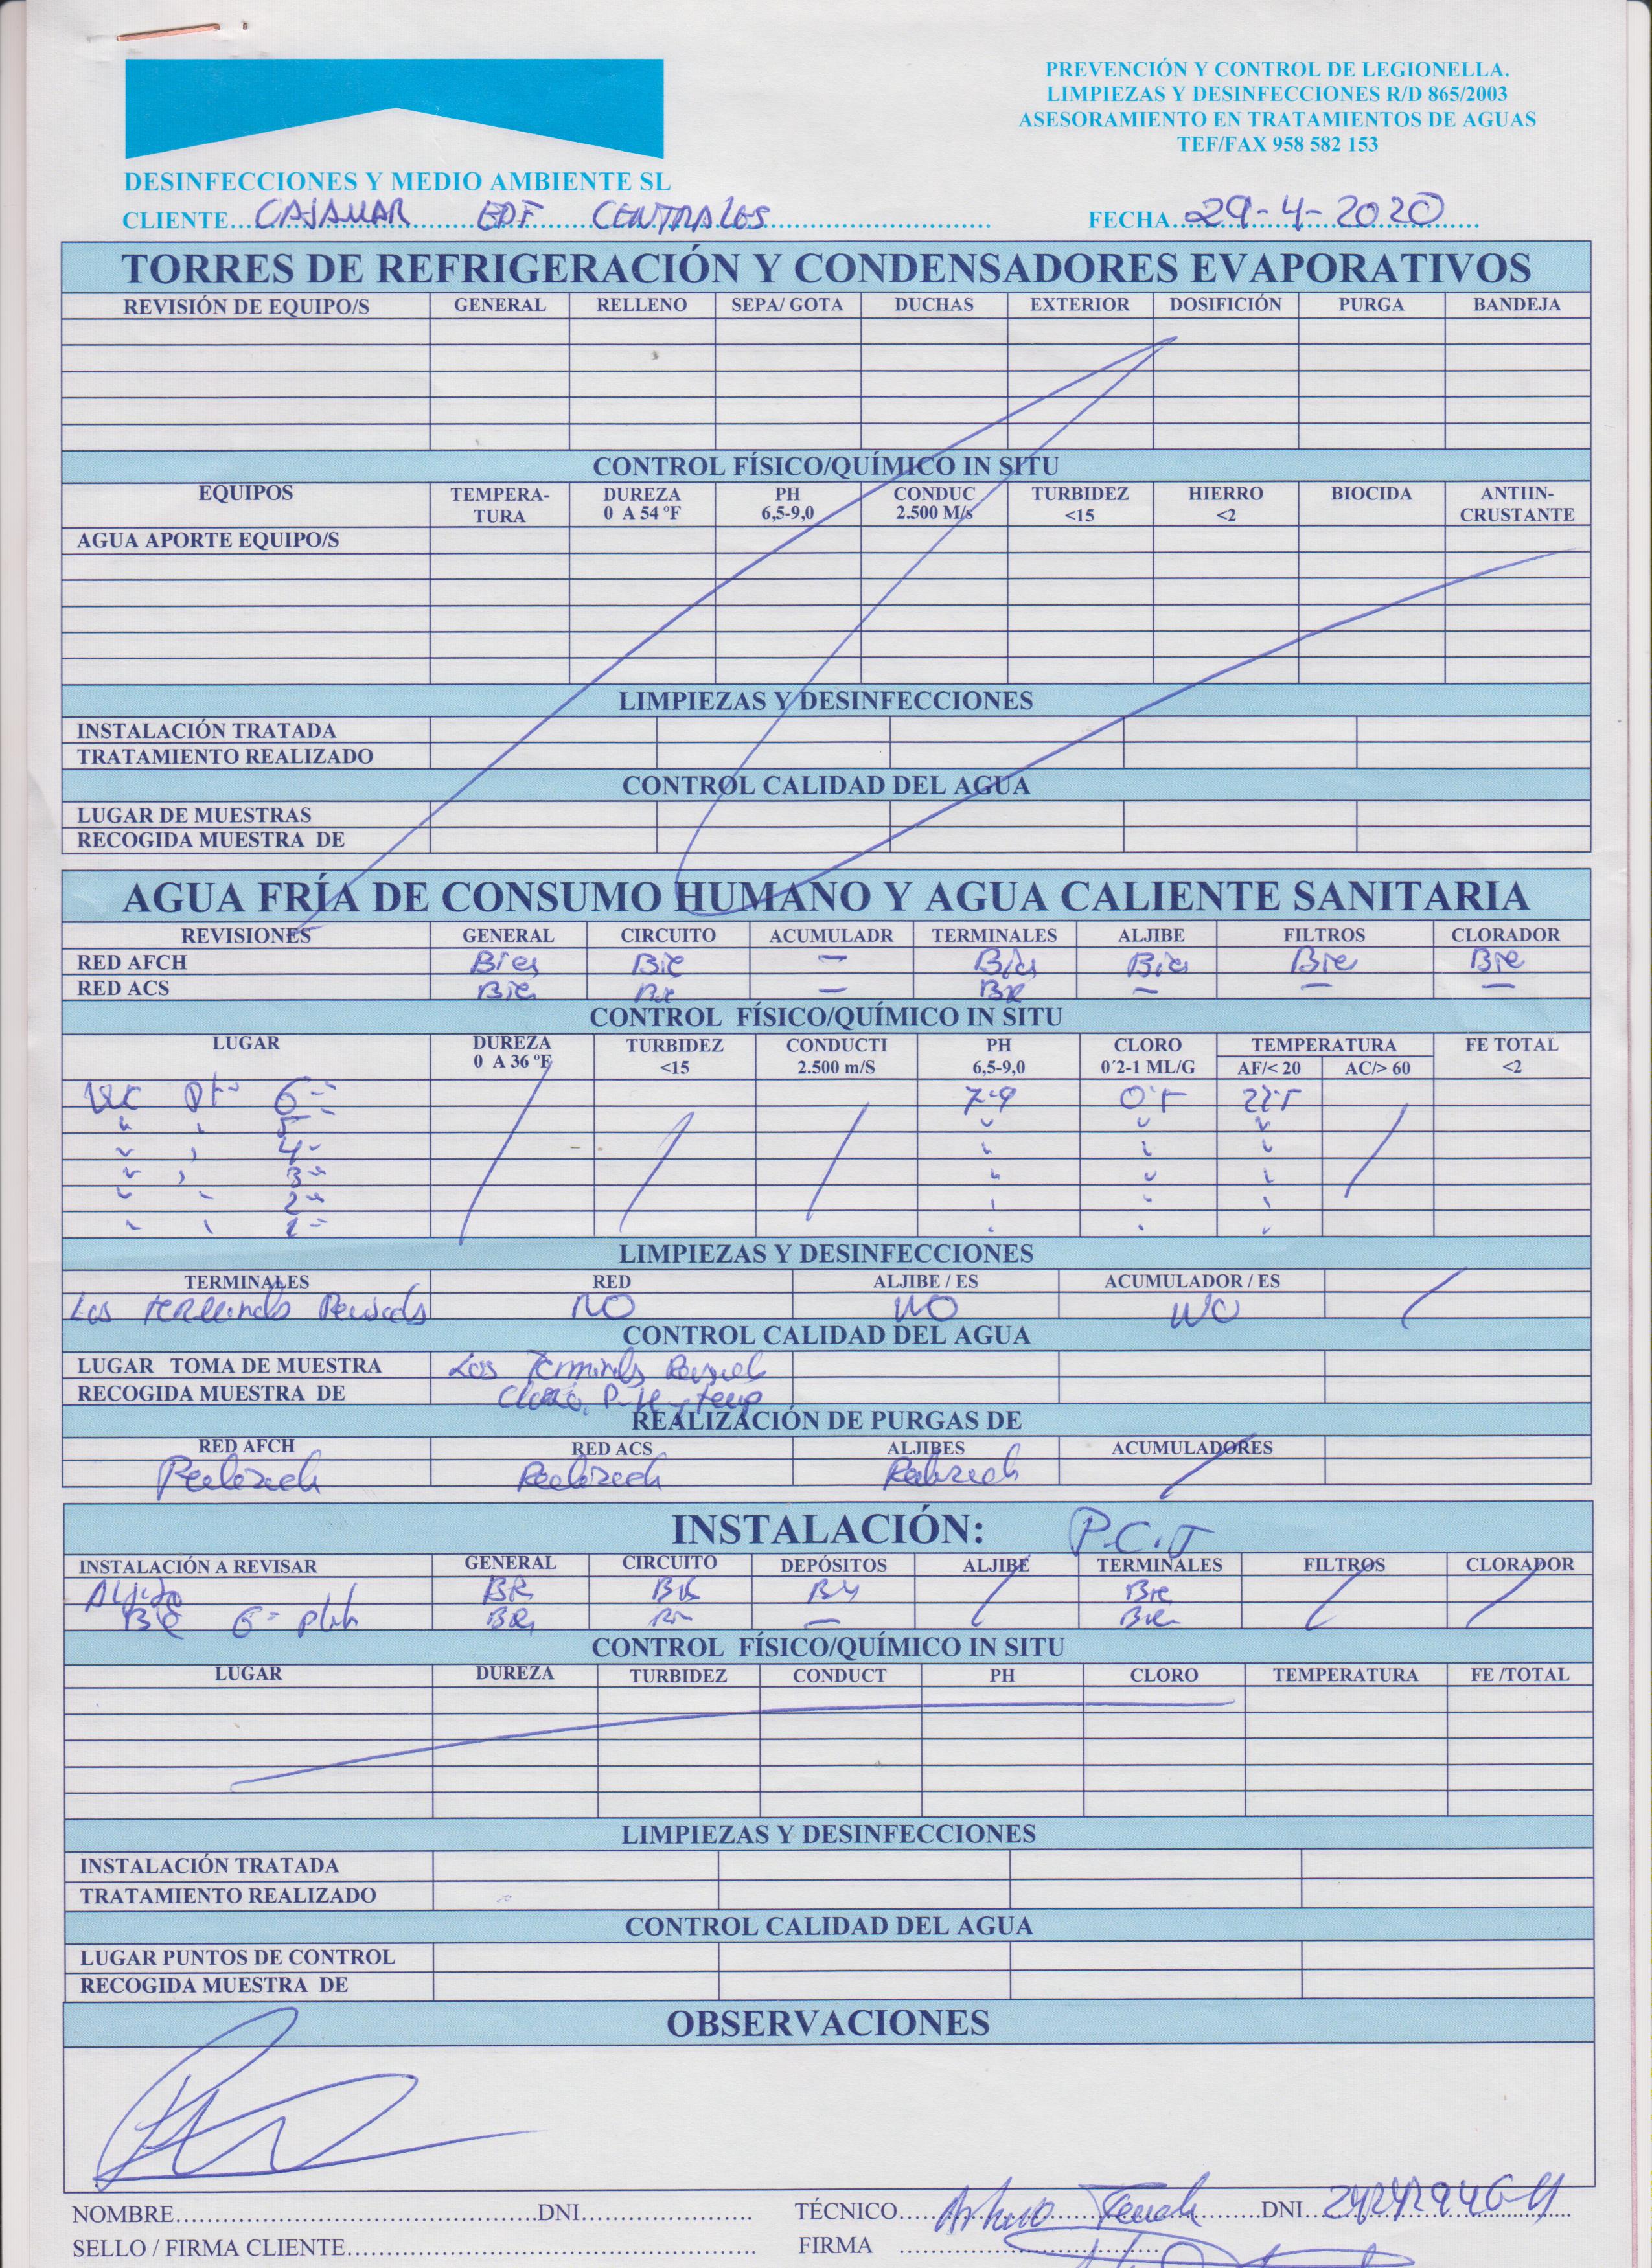 PREVENCIÓN Y CONTROL DE LEGIONELLA.
LIMPIEZAS Y DESINFECCIONES R/D 865/2003
ASESORAMIENTO EN TRATAMIENTOS DE AGUAS
TEF/FAX 958 582 153
DESINFECCIONES Y MEDIO AMBIENTE SL
CLIENTE CAJAMAR EDF CENTRALES FECHA 29-4-2020
TORRES DE REFRIGERACIÓN Y CONDENSADORES EVAPORATIVOS
REVISIÓN DE EQUIPO/S GENERAL RELLENO SEPA/ GOTA DUCHAS EXTERIOR DOSIFICIÓN PURGA BANDEJA
CONTROL FÍSICO/QUÍMICO IN SITU
EQUIPOS TEMPERA- DUREZA PH CONDUC TURBIDEZ HIERRO BIOCIDA ANTIIN-
TURA 0 A 54 ºF 6,5-9,0 2.500 M/s <15 <2 CRUSTANTE
AGUA APORTE EQUIPO/S
LIMPIEZAS Y DESINFECCIONES
INSTALACIÓN TRATADA
TRATAMIENTO REALIZADO
CONTROL CALIDAD DEL AGUA
LUGAR DE MUESTRAS
RECOGIDA MUESTRA DE
AGUA FRÍA DE CONSUMO HUMANO Y AGUA CALIENTE SANITARIA
REVISIONES GENERAL CIRCUITO ACUMULADR TERMINALES ALJIBE FILTROS CLORADOR
RED AFCH Bien Bie - Bien Bien Bie Bie
RED ACS Bie - - - -
CONTROL FÍSICO/QUÍMICO IN SITU
LUGAR DUREZA TURBIDEZ CONDUCTI PH CLORO TEMPERATURA FE TOTAL
0 A 36 ºF <15 2.500 m/S 6,5-9,0 0´2-1 ML/G AF/< 20 AC/> 60 <2
6ª 7-9
5
4ª
3ª
2ª
1ª
LIMPIEZAS Y DESINFECCIONES
TERMINALES RED ALJIBE / ES ACUMULADOR / ES
Los NO NO NO
CONTROL CALIDAD DEL AGUA
LUGAR TOMA DE MUESTRA Los
RECOGIDA MUESTRA DE Cloro, P-H y temp
REALIZACIÓN DE PURGAS DE
RED AFCH RED ACS ALJIBES ACUMULADORES
INSTALACIÓN: P.C.I
INSTALACIÓN A REVISAR GENERAL CIRCUITO DEPÓSITOS ALJIBE TERMINALES FILTROS CLORADOR
Aljibe Bie
Bie 6ª - Bie
CONTROL FÍSICO/QUÍMICO IN SITU
LUGAR DUREZA TURBIDEZ CONDUCT PH CLORO TEMPERATURA FE /TOTAL
LIMPIEZAS Y DESINFECCIONES
INSTALACIÓN TRATADA
TRATAMIENTO REALIZADO
CONTROL CALIDAD DEL AGUA
LUGAR PUNTOS DE CONTROL
RECOGIDA MUESTRA DE
OBSERVACIONES
NOMBRE DNI TÉCNICO Arturo DNI
SELLO / FIRMA CLIENTE FIRMA